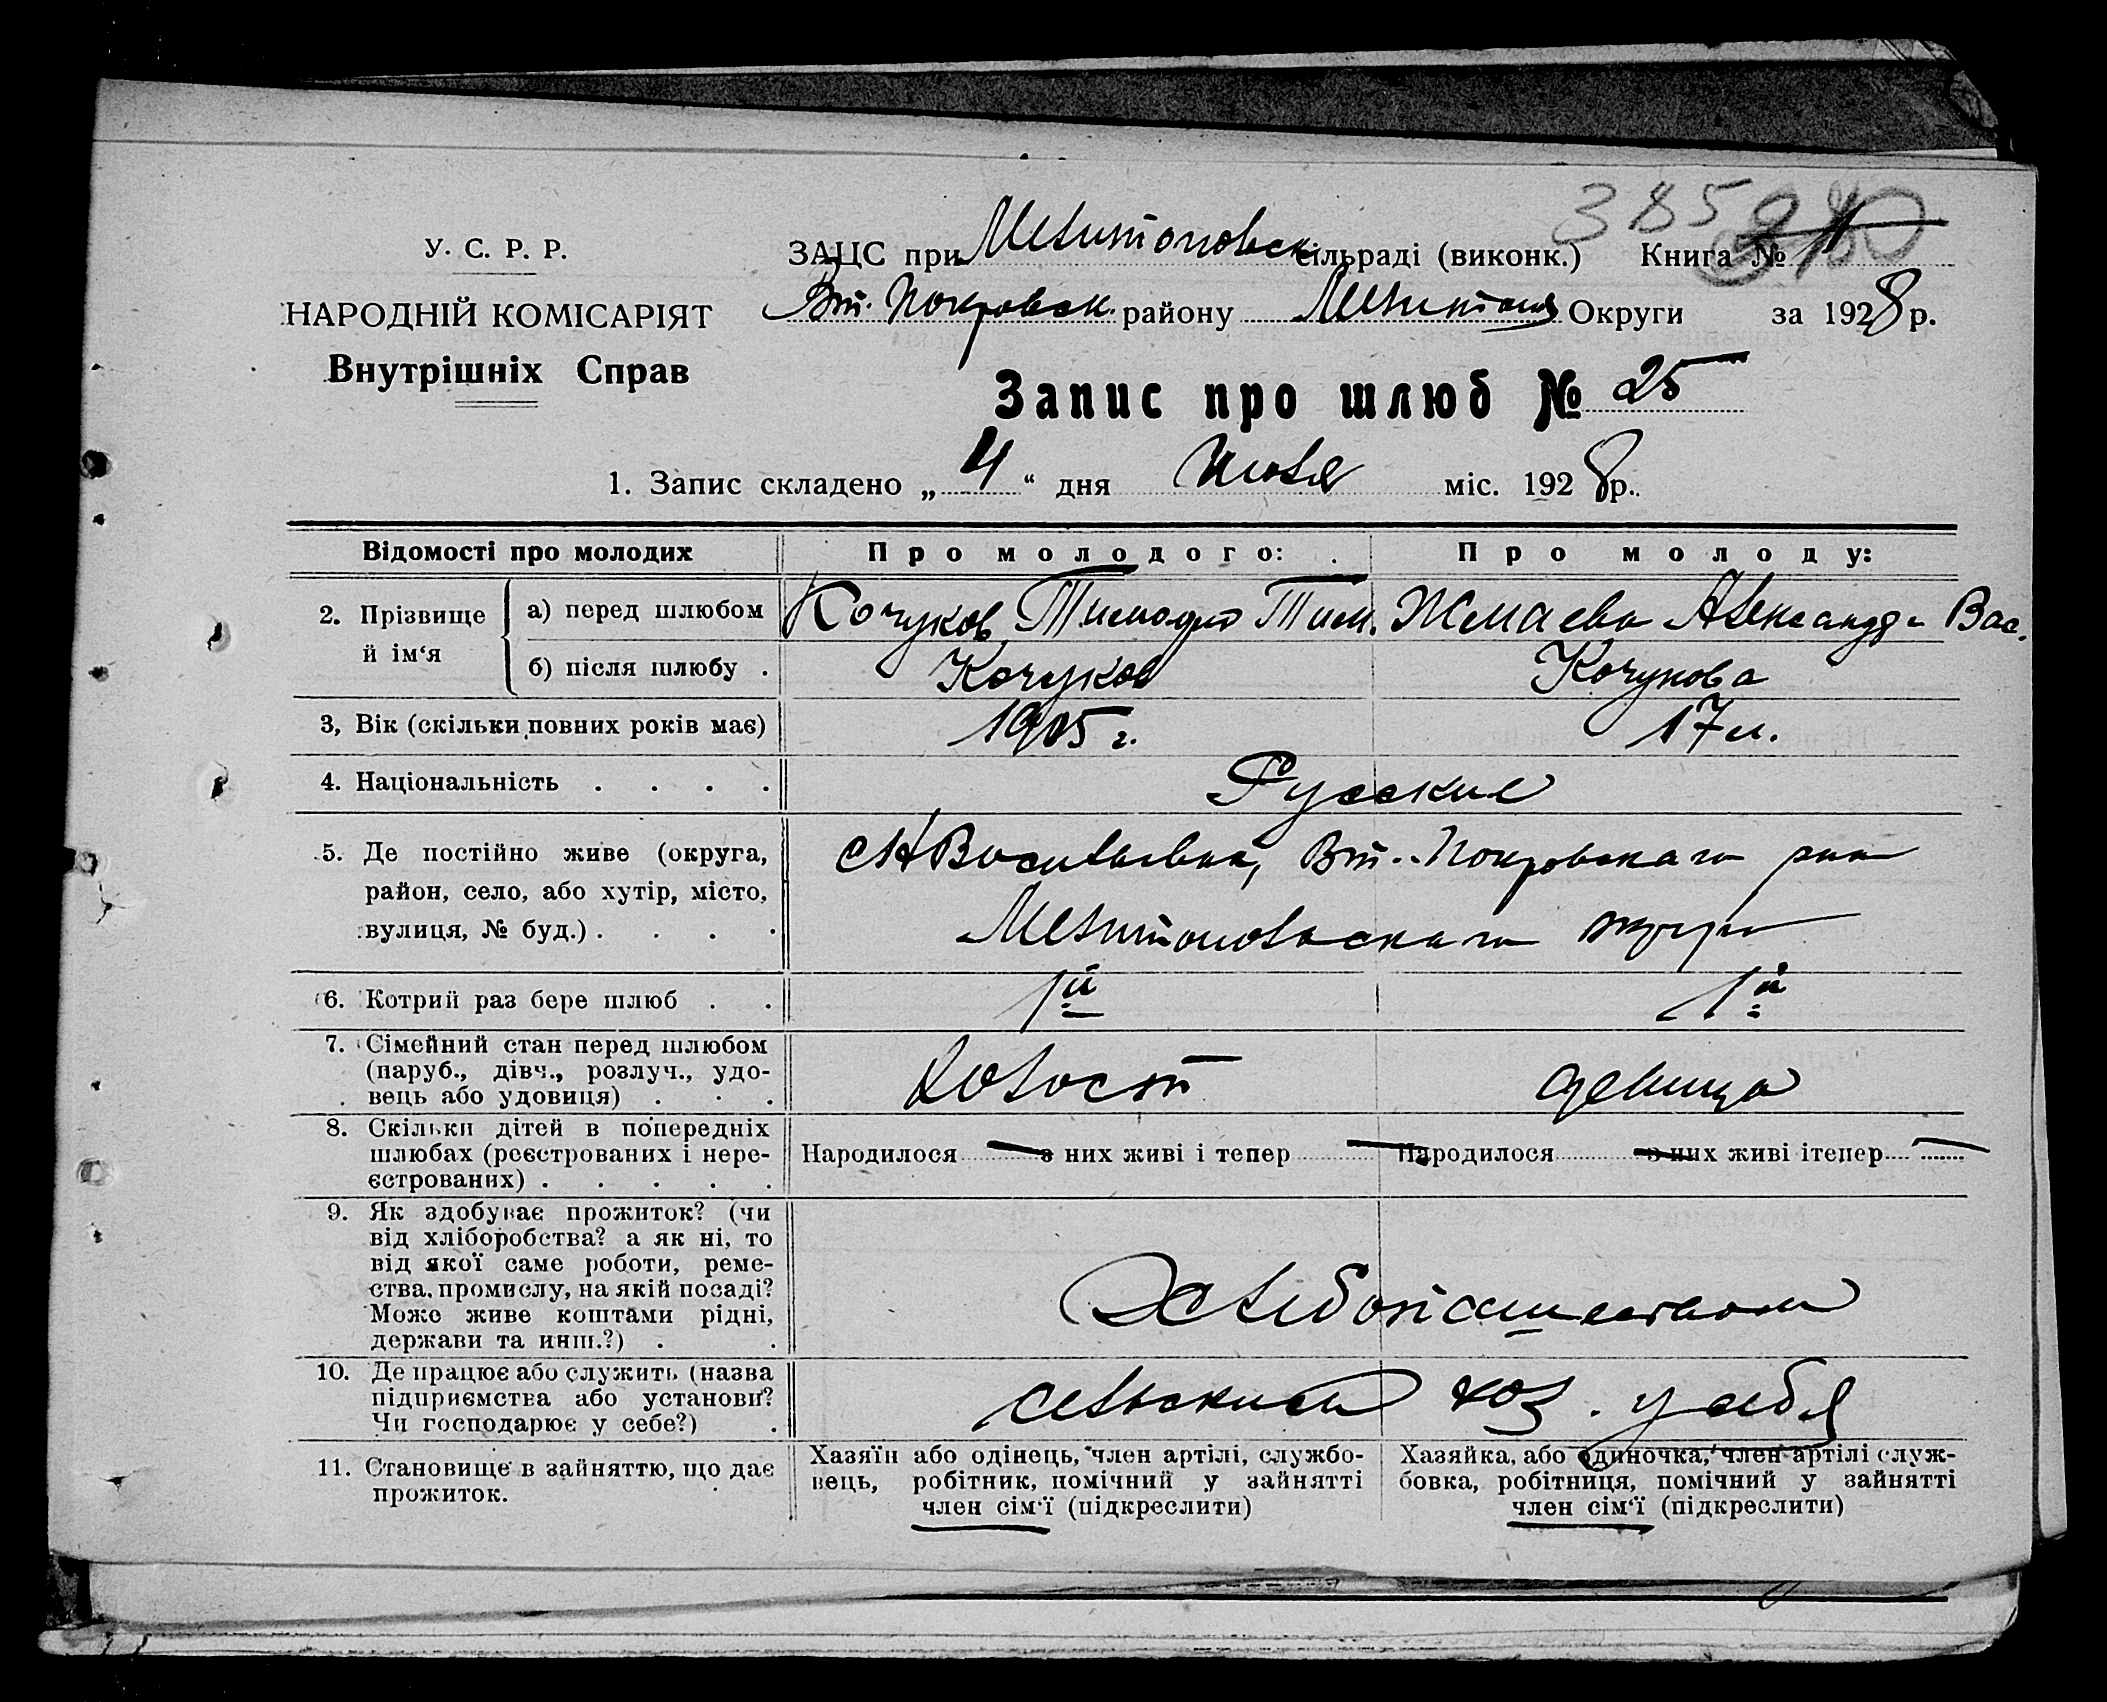 385
У. С. Р. Р.
НАРОДНІЙ КОМІСАРІЯТ
Внутрішніх Справ
ЗАЦС при Мелитоповск сільраді (виконк.) Книга №
Вт. Покровск. району Мелитопол Округи за 1928 р.
Запис про шлюб № 25
1. Запис складено „ 4 “ дня Июля міс. 1928 р.
Відомості про молодих Про молодого: Про молоду:
2. Прізвище й ім‘я
а) перед шлюбом Кочуков Тимофей Тим. Жмаева Александра Вас.
б) після шлюбу . Кочуков Кочукова
3, Вік (скільки повних років має) 1905 г. 17 л.
4. Національність . . . . Русские
5. Де постійно живе (округа, район, село, або хутір, місто, вулиця, № буд.) . . . .
Васильевка, Вт. Покровскаго
Мелитопольскаго округа
6. Котрий раз бере шлюб . . 1й 1й
7. Сімейний стан перед шлюбом
(паруб., дівч., розлуч., удо-
вець або удовиця) . . . холост девица
8. Скільки дітей в попередніх
шлюбах (реєстрованих і нере-
єстрованих) . . . . .
Народилося — з них живі і тепер — Народилося — з них живі ітепер —
9. Як здобуває прожиток? (чи
від хліборобства? а як ні, то
від якої саме роботи, реме-
ства, промислу, на якій посаді?
Може живе коштами рідні,
держави та инш.?) . . Хлебопашеством
10. Де працює або служить (назва
підприємства або установи?
Чи господарює у себе?) . сельским хоз. у себя
11. Становище в зайняттю, що дає
прожиток.
Хазяїн або одінець, член артілі, службо-
вець, робітник, помічний у зайнятті
член сім‘ї (підкреслити)
Хазяйка, або одиночка, член артілі служ-
бовка, робітниця, помічний у зайнятті
член сім‘ї (підкреслити)